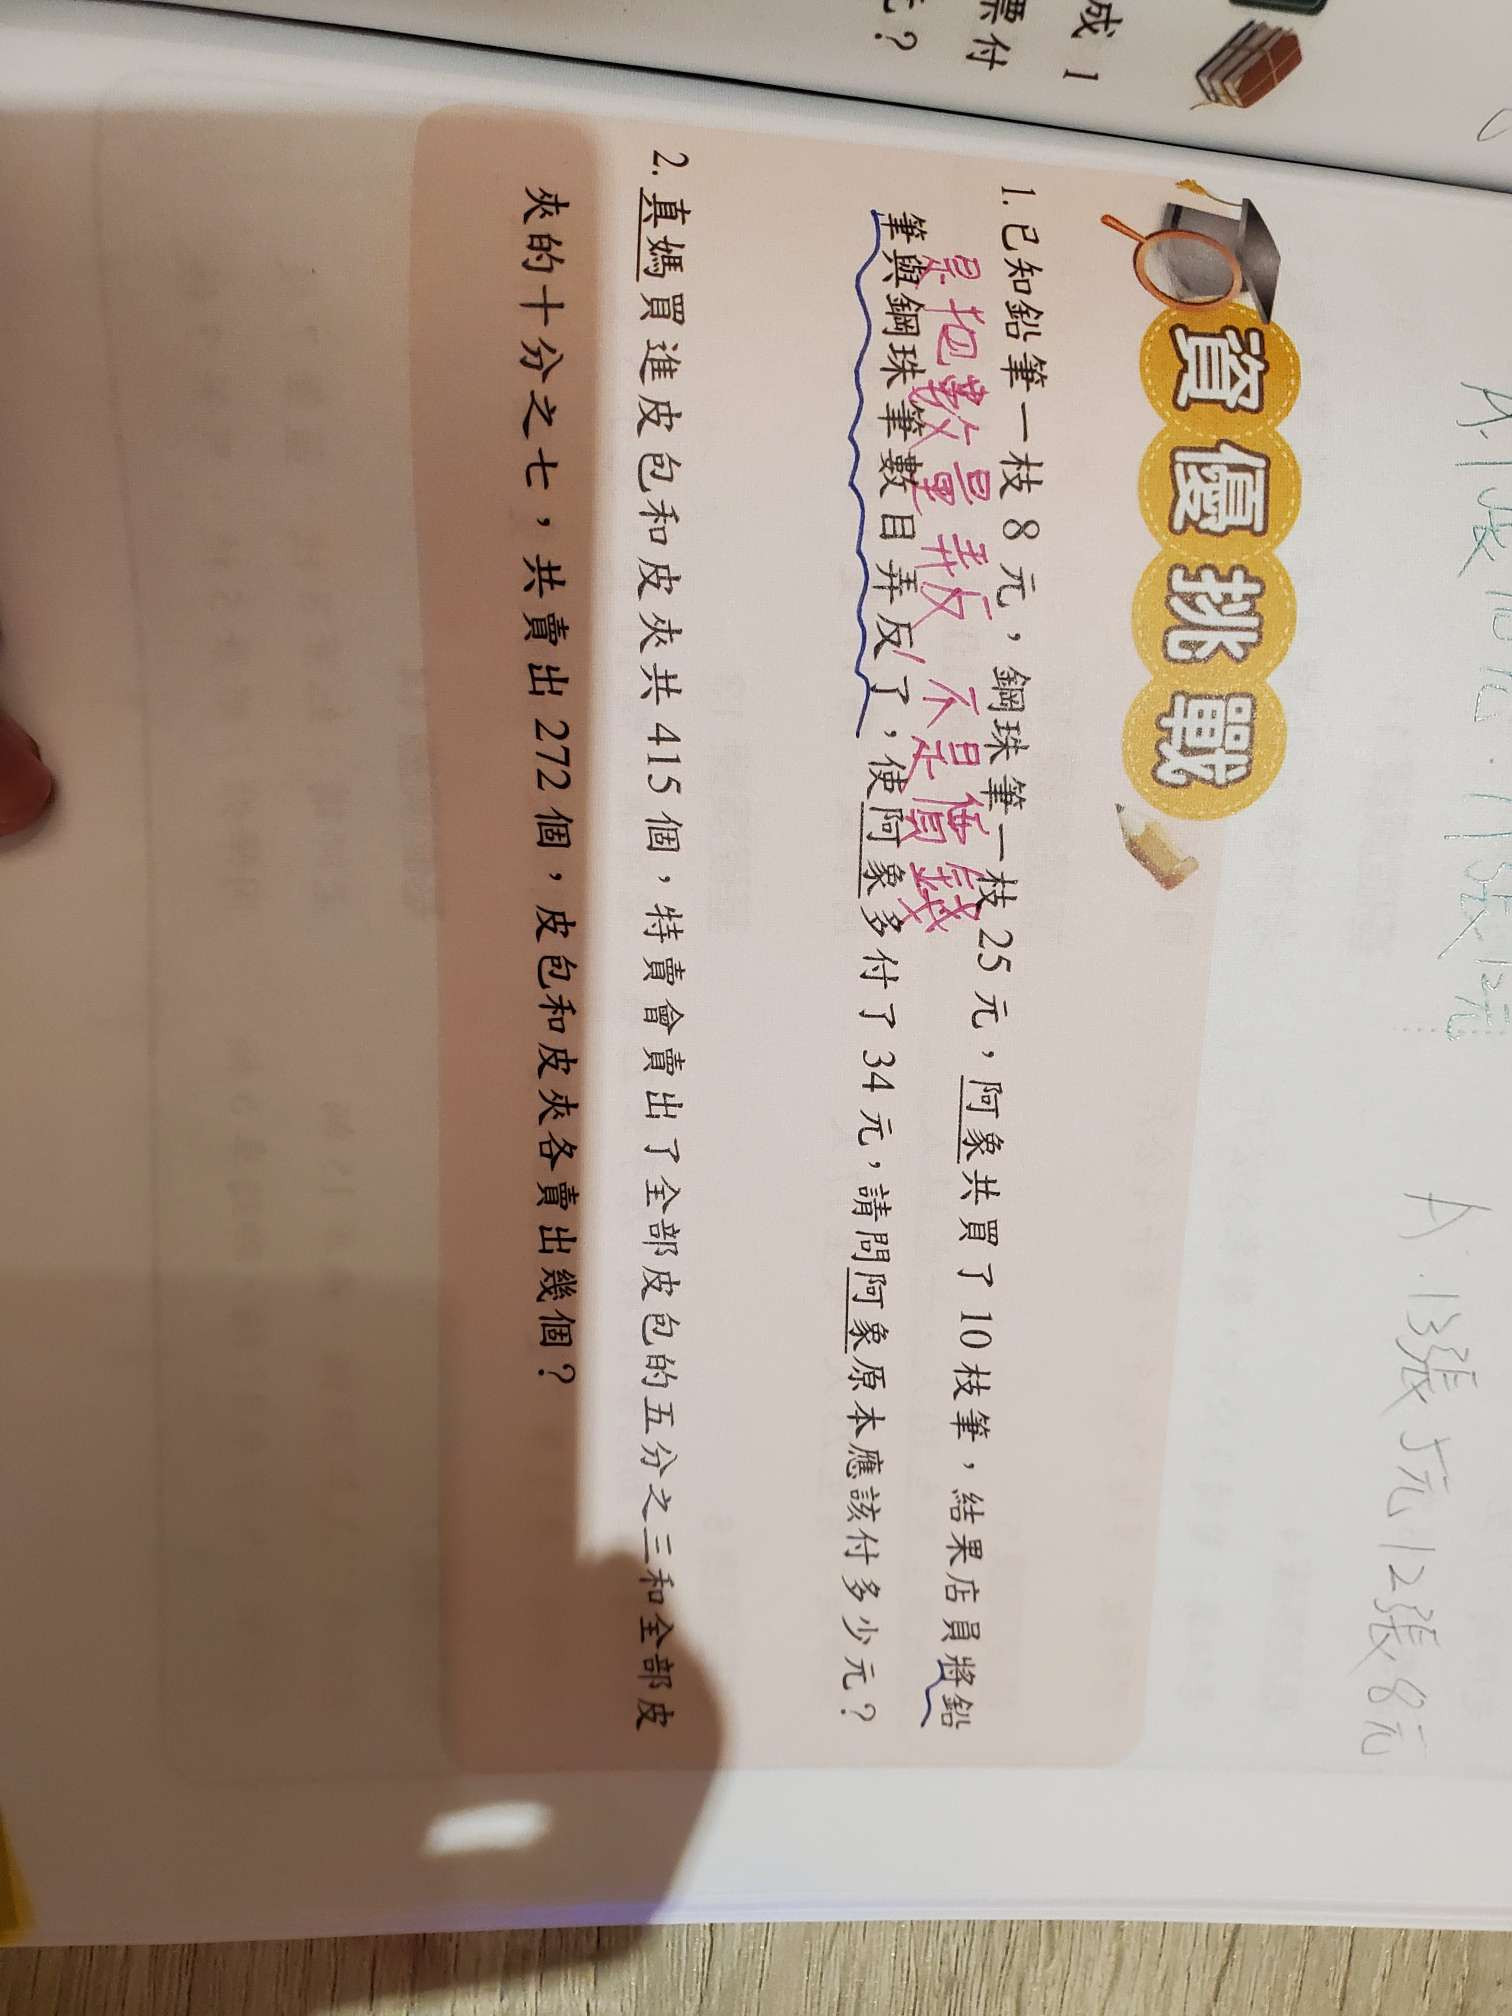 成 1
票付
元？
A.1張10元.11張12元
A.13張5元12張8元
資優挑戰
1. 已知鉛筆一枝 8 元，鋼珠筆一枝 25 元，阿象共買了 10 枝筆，結果店員將鉛
是把數量弄反 不是價錢
筆與鋼珠筆數目弄反了，使阿象多付了 34 元，請問阿象原本應該付多少元？
2. 真媽買進皮包和皮夾共 415 個，特賣會賣出了全部皮包的五分之三和全部皮
夾的十分之七，共賣出 272 個，皮包和皮夾各賣出幾個？